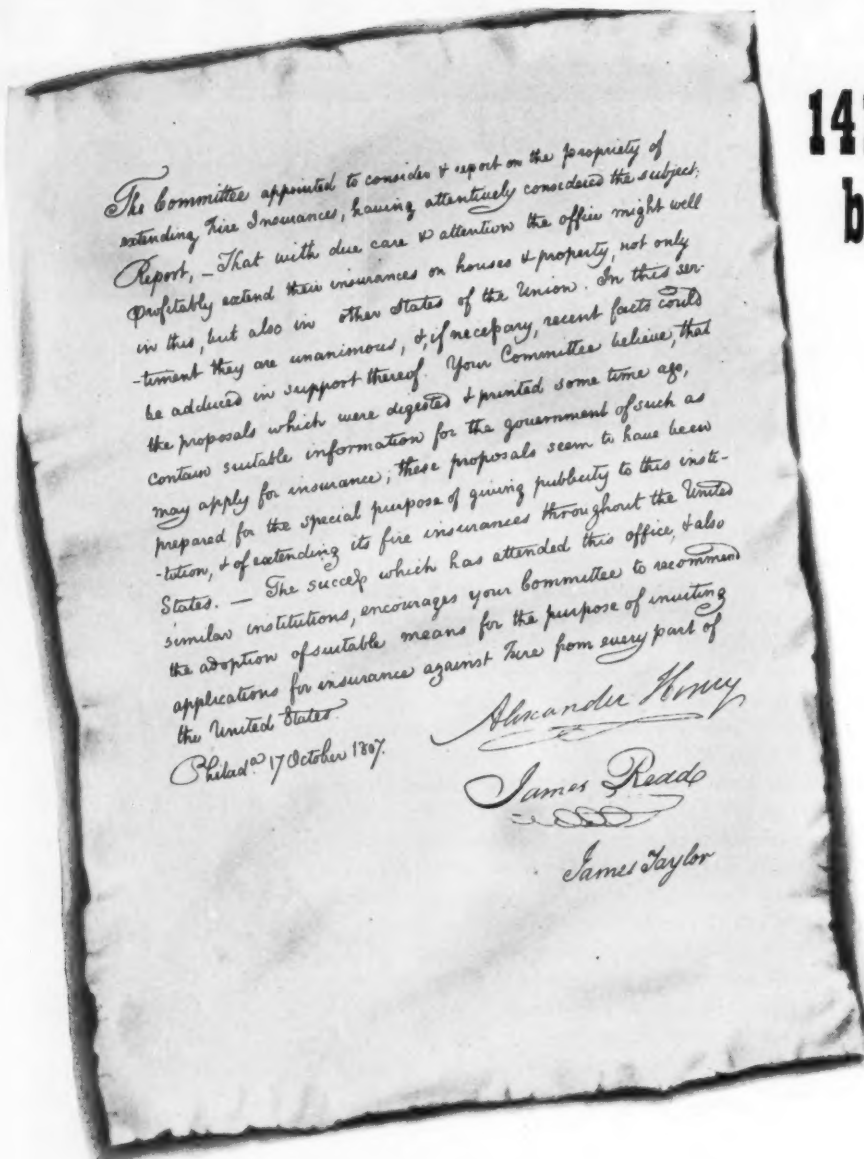 14
b
The Committee appointed to consider & report on the propriety of
extending Fire Insurances, having attentively considered the subject;
Report, – That with due care & attention the office might well
profitably extend their insurances on houses & property, not only
in this, but also in other States of the Union. In this sen-
-timent they are unanimous, &, if necessary, recent facts could
be adduced in support thereof. Your Committee believe, that
the proposals which were digested & printed some time ago,
contain suitable information for the government of such as
may apply for insurance; these proposals seem to have been
prepared for the special purpose of giving publicity to this insti-
-tution, & of extending its fire insurances throughout the United
States. — The success which has attended this office, & also
similar institutions, encourages your Committee to recommend
the adoption of suitable means for the purpose of inviting
applications for insurance against Fire from every part of
the United States.
Philada. 17 October 1807.
Alexander Henry
James Read
James Taylor